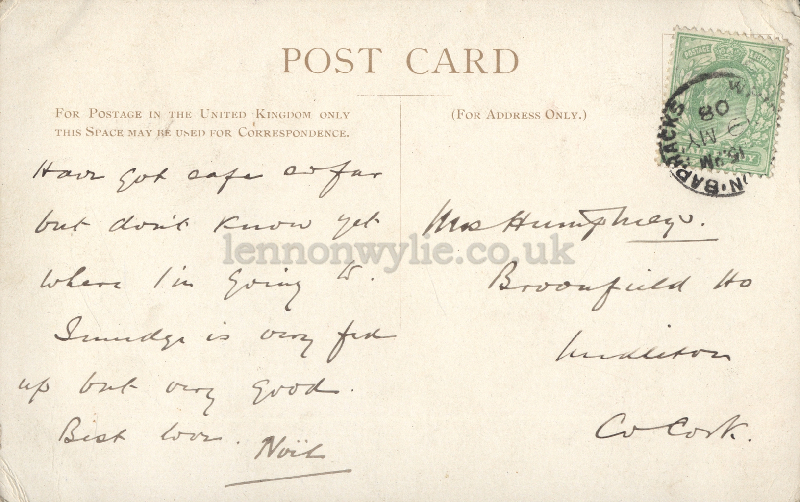 POST CARD
FOR POSTAGE IN THE UNITED KINGDOM ONLY
THIS SPACE MAY BE USED FOR CORRESPONDENCE.
(FOR ADDRESS ONLY.)
Have got safe so far
but don't know yet
where I'm going to.
Smudge is very fed
up but very good.
Best love. Noël
Mrs Humphreys.
Broomfield Ho
Midleton
Co Cork.
POSTAGE
BARRACKS
MY
08
lennonwylie.co.uk